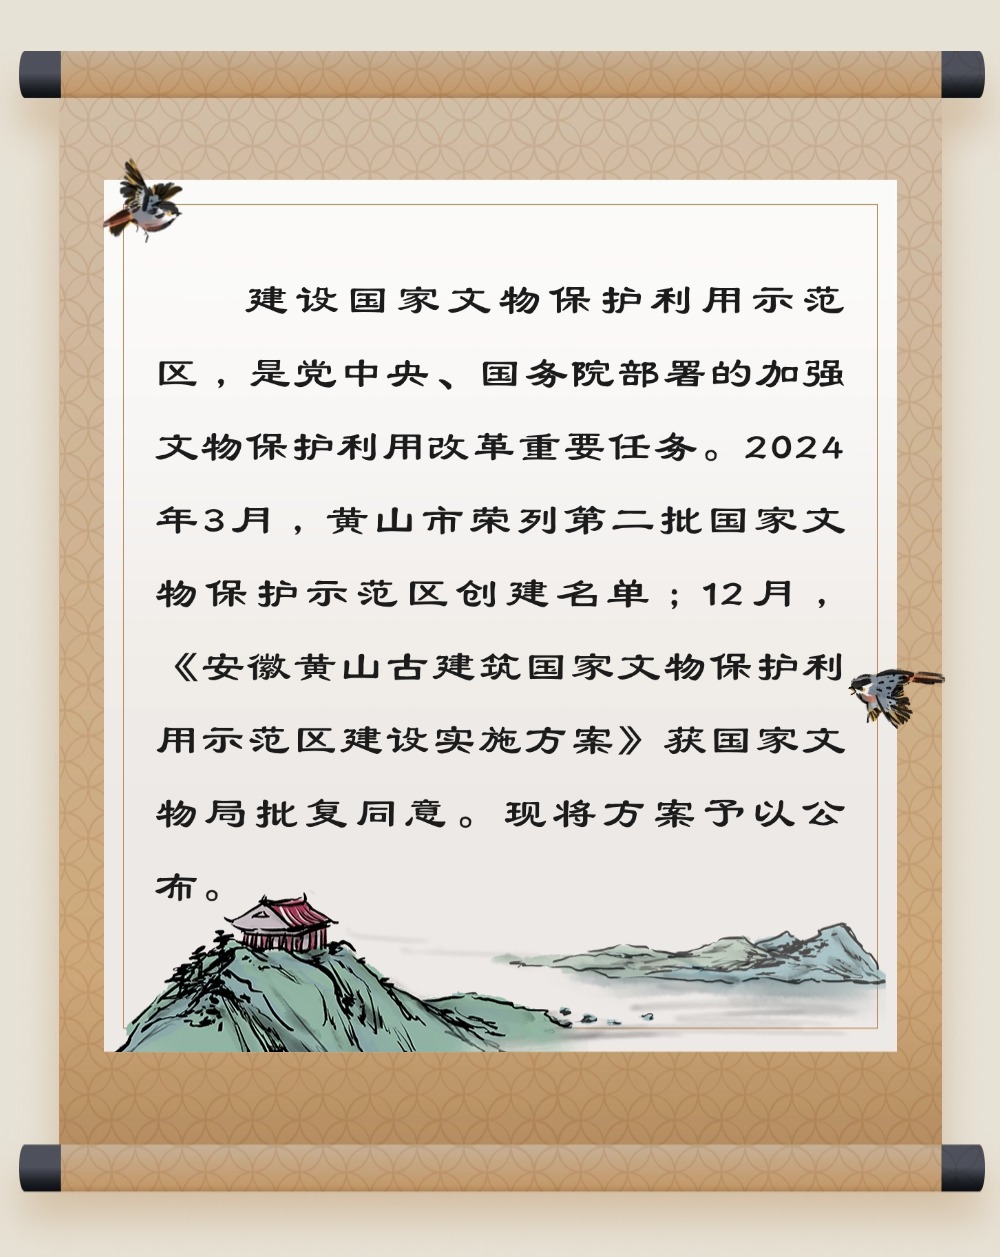 建设国家文物保护利用示范
区，是党中央、国务院部署的加强
文物保护利用改革重要任务。2024
年3月，黄山市荣列第二批国家文
物保护示范区创建名单；12月，
《安徽黄山古建筑国家文物保护利
用示范区建设实施方案》获国家文
物局批复同意。现将方案予以公
布。